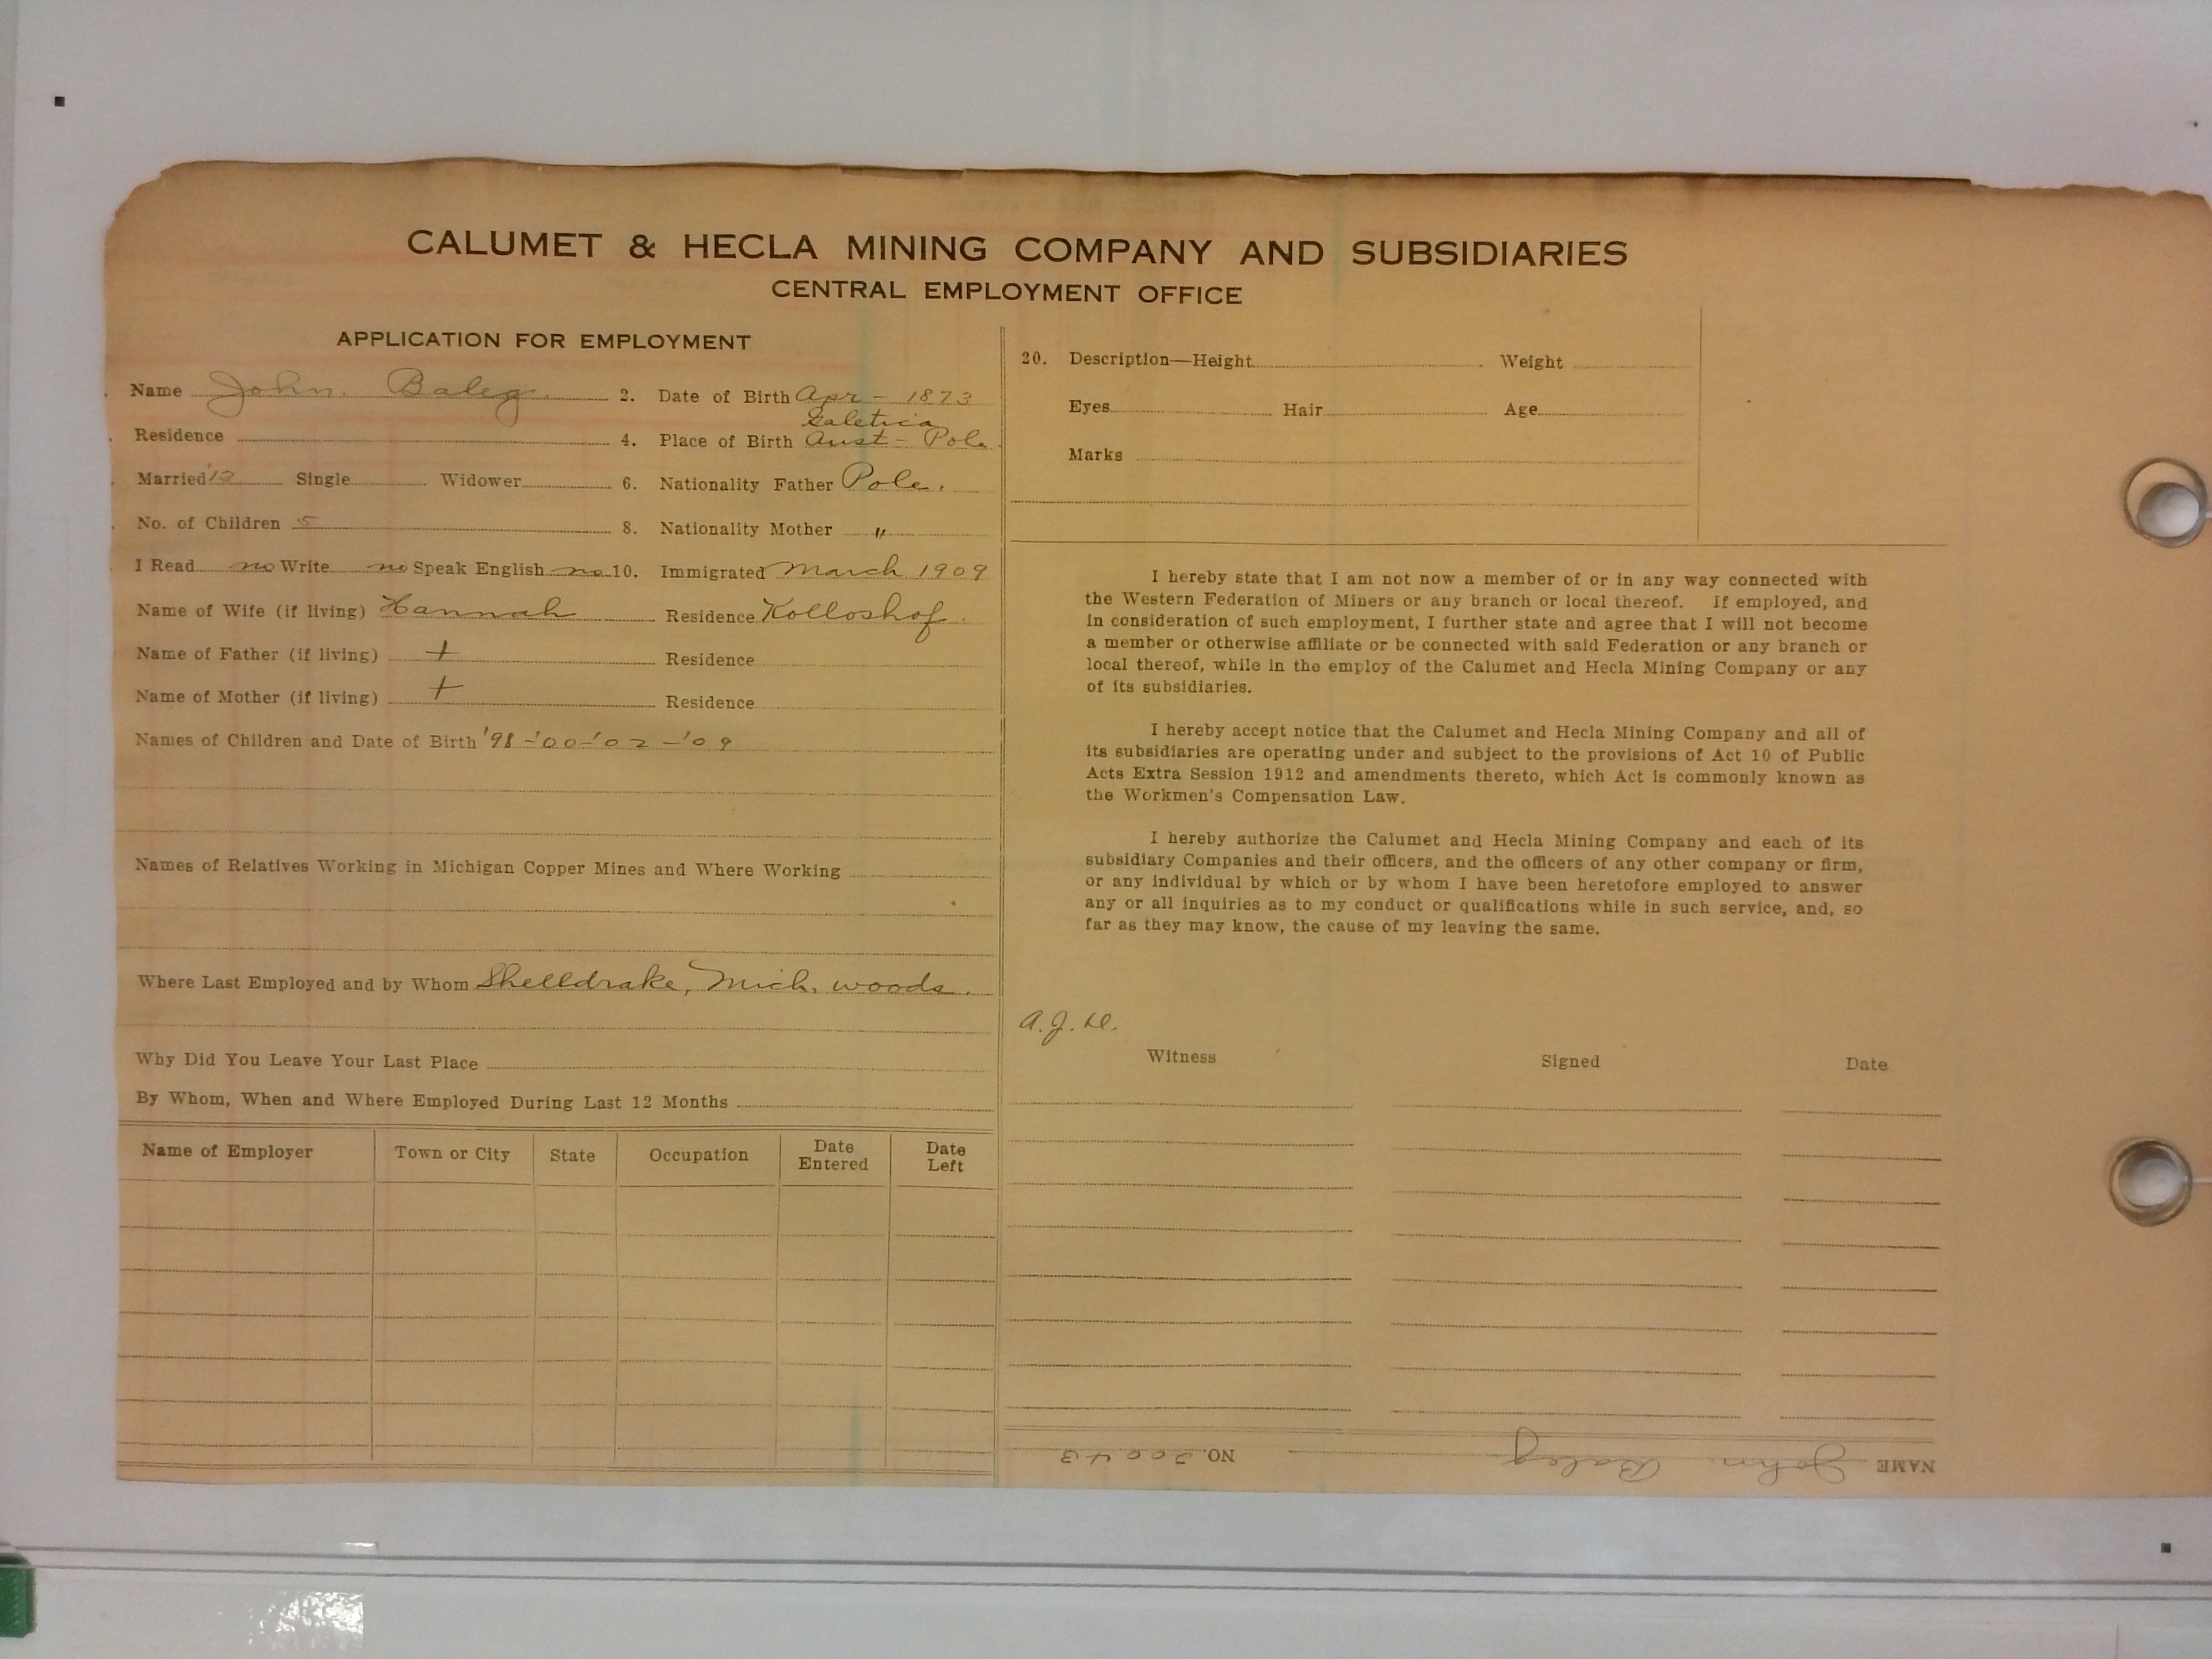 CALUMET & HECLA MINING COMPANY AND SUBSIDIARIES
CENTRAL EMPLOYMENT OFFICE
APPLICATION FOR EMPLOYMENT
Name John. Baleg. 2. Date of Birth Apr - 1873
Galetica
Residence 4. Place of Birth Aust - Pole
Married '13 Single Widower 6. Nationality Father Pole.
No. of Children 5 8. Nationality Mother "
I Read no Write no Speak English no 10. Immigrated March 1909
Name of Wife (if living) Hannah Residence Kolloshof.
Name of Father (if living) + Residence
Name of Mother (if living) + Residence
Names of Children and Date of Birth '98 - '00 - '02 - '09
Names of Relatives Working in Michigan Copper Mines and Where Working
Where Last Employed and by Whom Shelldrake, Mich. woods.
Why Did You Leave Your Last Place
By Whom, When and Where Employed During Last 12 Months
Name of Employer Town or City State Occupation Date Entered Date Left
20. Description—Height Weight
Eyes Hair Age
Marks
I hereby state that I am not now a member of or in any way connected with
the Western Federation of Miners or any branch or local thereof. If employed, and
in consideration of such employment, I further state and agree that I will not become
a member or otherwise affiliate or be connected with said Federation or any branch or
local thereof, while in the employ of the Calumet and Hecla Mining Company or any
of its subsidiaries.
I hereby accept notice that the Calumet and Hecla Mining Company and all of
its subsidiaries are operating under and subject to the provisions of Act 10 of Public
Acts Extra Session 1912 and amendments thereto, which Act is commonly known as
the Workmen's Compensation Law.
I hereby authorize the Calumet and Hecla Mining Company and each of its
subsidiary Companies and their officers, and the officers of any other company or firm,
or any individual by which or by whom I have been heretofore employed to answer
any or all inquiries as to my conduct or qualifications while in such service, and, so
far as they may know, the cause of my leaving the same.
Witness Signed Date
NAME John. Baleg NO. 20043